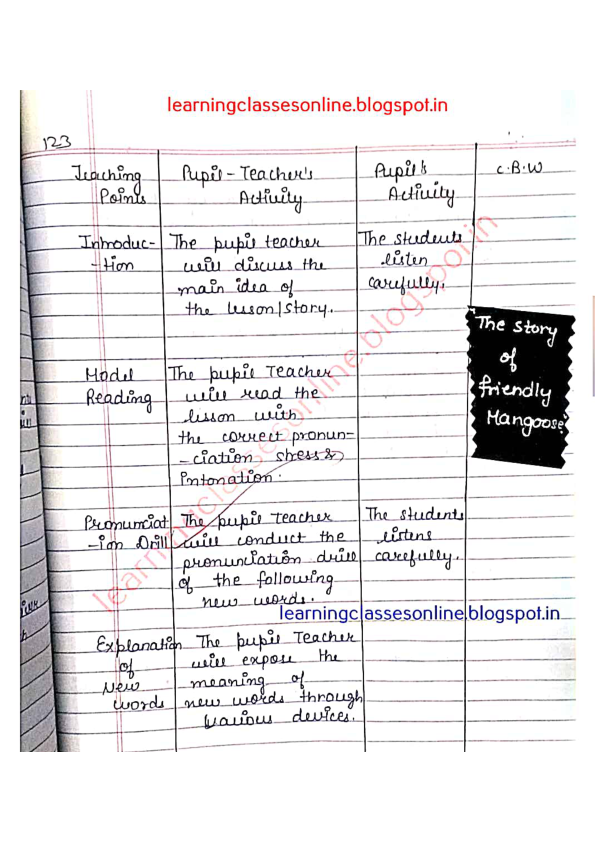 learningclassesonline.blogspot.in
123
Teaching Points
Pupil-Teacher's Activity
Pupil's Activity
C.B.W
Introduc-
-tion
The pupil teacher
will discuss the
main idea of
the lesson/story.
The students
listen
carefully.
The story
of
friendly
Mangoose
Model
Reading
The pupil Teacher
will read the
lesson with
the correct pronun-
-ciation stress &
intonation.
Pronunciat
-ion Drill
The pupil Teacher
will conduct the
pronunciation drill
of the following
new words.
The students
listens
carefully.
learningclassesonline.blogspot.in
Explanation
of
New
words
The pupil Teacher
will expose the
meaning of
new words through
various devices.
learningclassesonline.blogspot.in